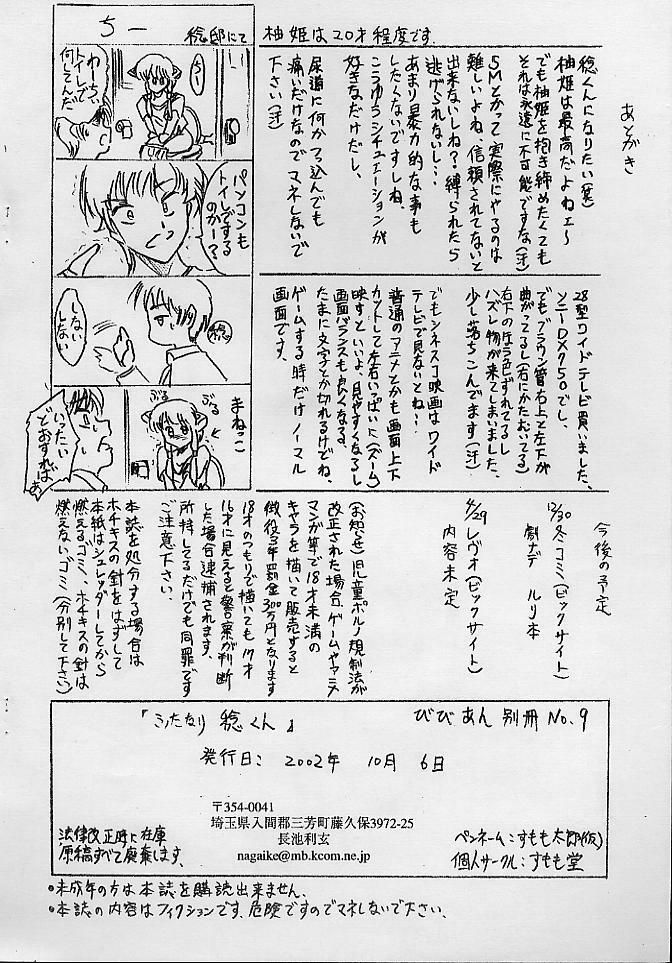 あとがき
柚姫は20才程度です。
稔くんになりたい(笑)
柚姫は最高だよねェ〜
でも柚姫を抱き締めたくても
それは永遠に不可能ですな(汗)
SMとかって実際にやるのは
難しいよね、信頼されてないと
出来ないしね?縛られたら
逃げられないし…
あまり暴力的な事も
したくないですしね、
こうゆうシチュエーションが
好きなだけだし、
尿道に何かつっ込んでも
痛いだけなのでマネしないで
下さい(汗)
28型ワイドテレビ買いました、
ソニーDX750でし、
でもブラウン管右上と左下が
曲がってるし(右にかたむいてる)
右下の方う色ずれてるし
ハズレ物が来てしまいました、
少し落ちこんでます(汗)
でもシネスコ映画はワイド
テレビで見ないとね!!
普通のアニメとかも画面上下
カットして左右いっぱいに(ズーム)
映すといいよ、見やすくなるし
画面バランスも良くなる、
たまに文字とか切れるけどね、
ゲームする時だけノーマル
画面です、
稔邸にて
ちー
ちー
わーちぃ
トイレで
何してんだ
パソコンも
トイレするの
かー?
しない
しない
稔
まねっこ
ぶる
ぶる
いったい
どおすれば
ぁ
今後の予定
12/30 冬コミ(ビックサイト)
劇ナデ ルリ本
4/29 レヴォ(ビックサイト)
内容未定
(お知らせ)児童ポルノ規制法が
改正された場合、ゲームやアニメ
マンガ等で18才未満の
キャラを描いて販売すると
懲役3年罰金300万円となります
18才のつもりで描いても17才
16才に見えると警察が判断
した場合逮捕されます、
所持してるだけでも同罪です
ご注意下さい、
本誌を処分する場合は
ホチキスの針をはずして
本紙はシュレッダーしてから
燃えるゴミ、ホチキスの針は
燃えないゴミ(分別して下さい)
「ふたなり 稔くん」
びびあん 別冊 No.9
発行日: 2002年 10月 6日
〒354-0041
埼玉県入間郡三芳町藤久保3972-25
長池利玄
nagaike@mb.kcom.ne.jp
法律改正時に在庫
原稿すべて廃棄します、
ペンネーム:すもも太郎(仮)
個人サークル:すもも堂
●未成年の方は本誌を購読出来ません、
●本誌の内容はフィクションです、危険ですのでマネしないで下さい、